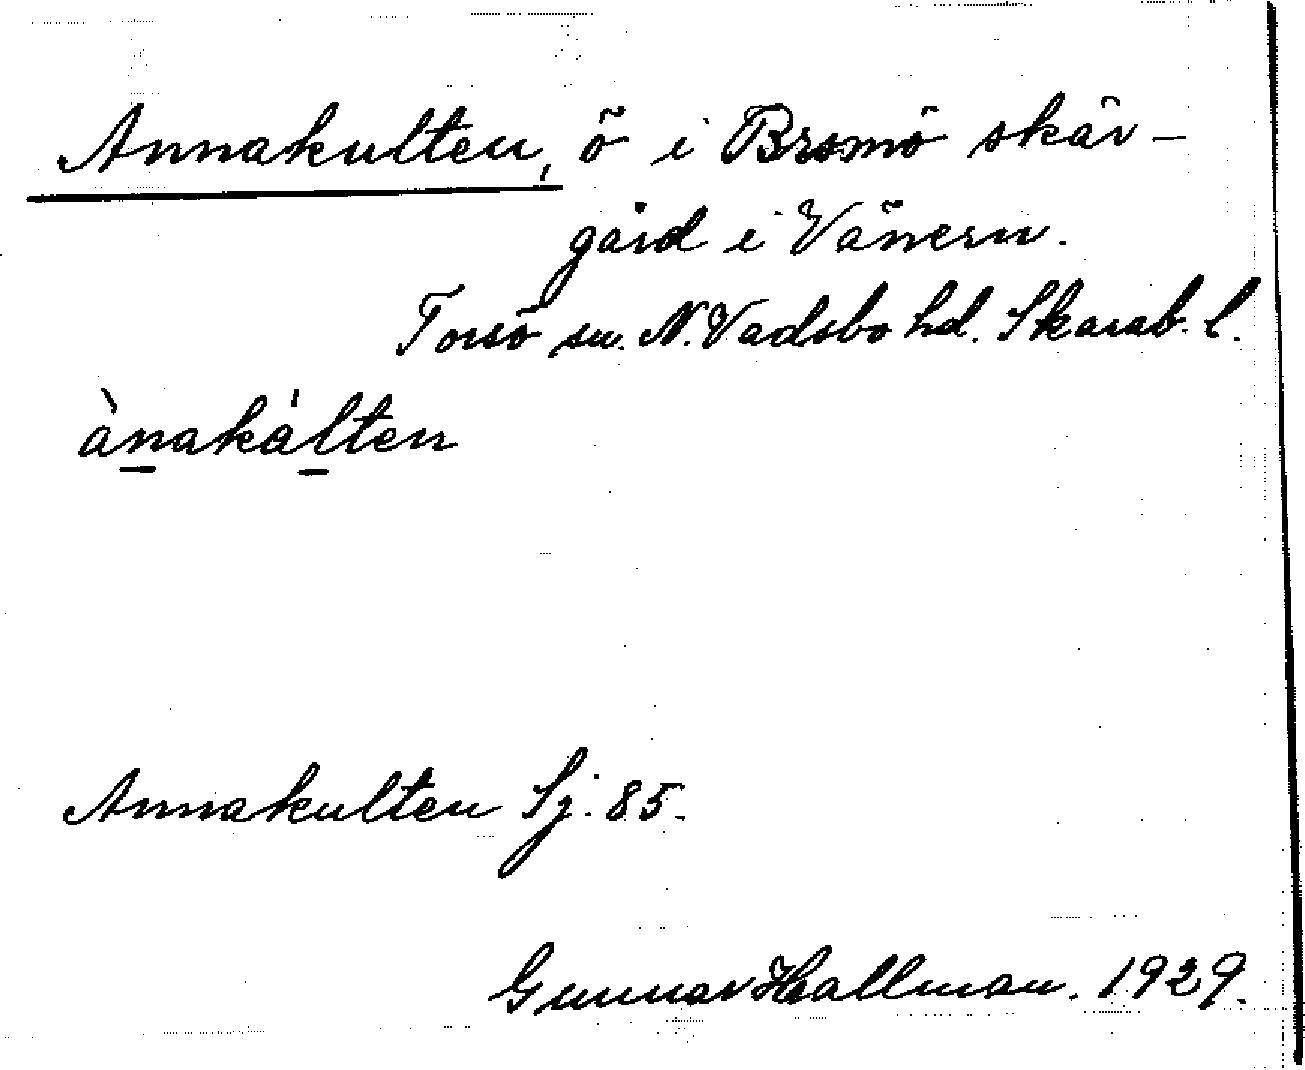 Annakulten, ö i Bromö skär-
gård i Vänern.
Torsö sn. N. Vadsbo hd. Skarab. l.
ànakálten
Annakulten Sj. 85.
Gunnar Hallman. 1929.